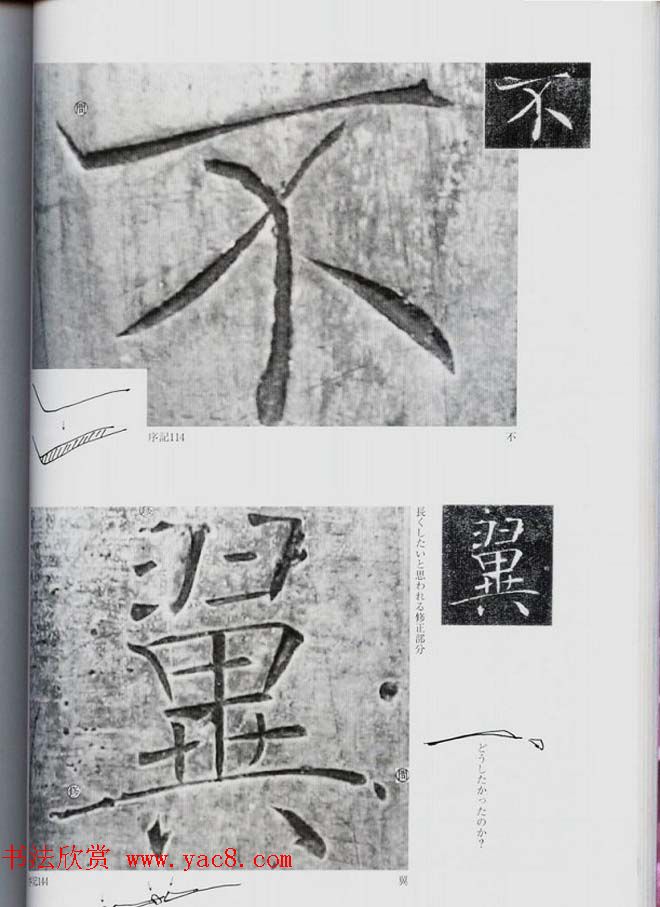 不
間
不
序記114
不
翼
長くしたいと思われる修正部分
翼
間
どうしたかったのか?
书法欣赏 www.yac8.com
記144
翼